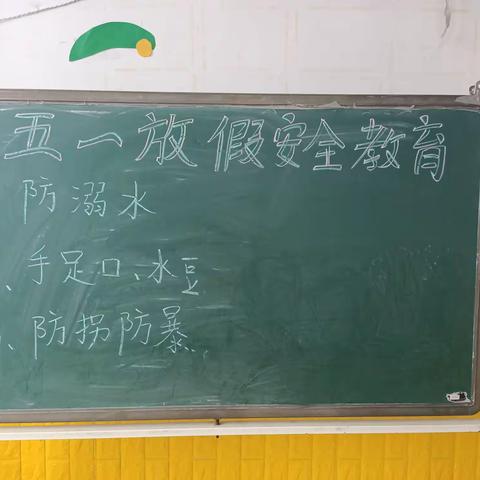 五一放假安全教育
防溺水
、手足口、水豆
、防拐防暴